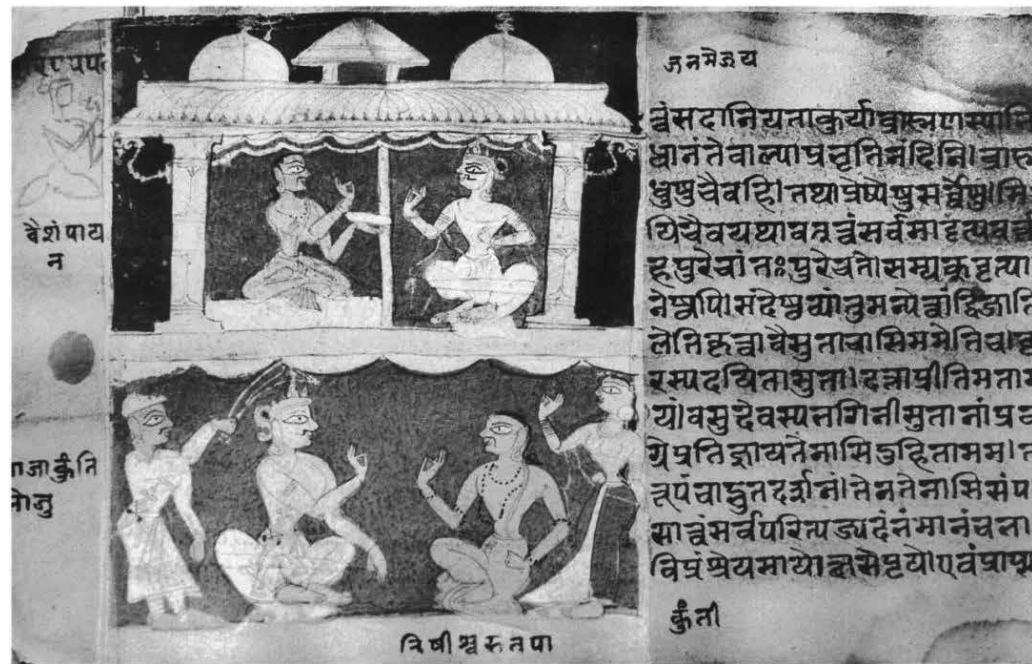 वैशंपाय
न
कुंति
भोजु
जनमेजय
त्वंसदानियताकुर्याब्राह्मणस्या
धानंतेबाल्यात्प्रभृतिनंदिनि।ब्राह्म
धुषुचैवहि।तथाप्रेष्येषुसर्वेषुमि
यिचैवयथावत्त्वंसर्वमादृत्यव
हपुरेचांतःपुरेचते।सम्यकवृत्या
नेष्वपि।संदेष्टव्यांतुमन्येत्वांद्विजाति
लेतिकृत्वावैसुताचासिममेतिच।वृ
रस्यदयितासुता।दत्ताप्रीतिमताम
यं।वसुदेवस्यभगिनीसुतानांप्रव
ग्रेप्रतिज्ञायतेनासिदुहितामम।त
रूपंचाद्भुतदर्शनं।तेनतेनासिसंप
सात्वंसर्वपरित्यज्यदंभंमानंचभा
विप्रंश्रेयसायोक्ष्यसेपृथे।एवंप्राप्स्य
कुंती
त्रिषीश्वरूतपा